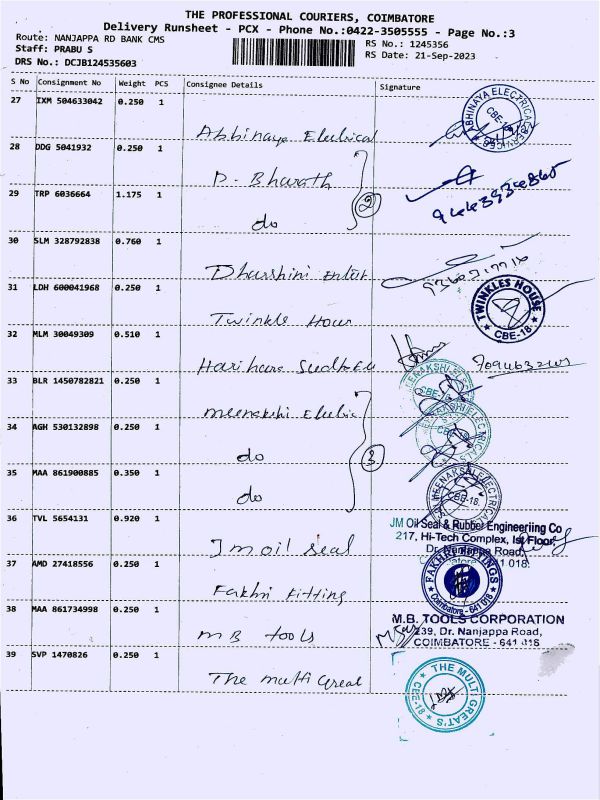 THE PROFESSIONAL COURIERS, COIMBATORE
Delivery Runsheet - PCX - Phone No.:0422-3505555 - Page No.:3
Route: NANJAPPA RD BANK CMS
RS No.: 1245356
Staff: PRABU S
RS Date: 21-Sep-2023
DRS No.: DCJB124535603
S No Consignment No Weight PCS Consignee Details Signature
27 IXM 504633042 0.250 1
Abhinaya Electrical
ABHINAYA ELECTRICAL SERVICES CBE-18
28 DDG 5041932 0.250 1
D. Bharath
29 TRP 6036664 1.175 1
do
2
30 SLM 328792838 0.760 1
Dharshini Enter
31 LDH 600041968 0.250 1
Twinkle Hour
TWINKLES HOUSE CBE-18
32 MLM 30049309 0.510 1
33 BLR 1450782821 0.250 1
meenakshi Electric
34 AGH 530132898 0.250 1
do
3
35 MAA 861900885 0.350 1
do
36 TVL 5654131 0.920 1
Jm oil seal
JM Oil Seal & Rubber Engineeriing Co
217, Hi-Tech Complex, Ist Floor,
Dr. Nanjappa Road,
37 AMD 27418556 0.250 1
Fakhri Fitting
Coimbatore - 641 018
38 MAA 861734998 0.250 1
MB tools
M.B. TOOLS CORPORATION
239, Dr. Nanjappa Road,
COIMBATORE - 641 018
39 SVP 1470826 0.250 1
The multi Great
THE MULTI GREAT'S CBE-18